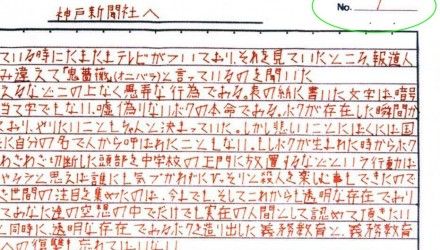 神戸新聞社へ
No. 1
ている時にたまたまテレビがついており、それを見ていたところ、報道人
み違えて「鬼薔薇」(オニバラ)と言っているのを聞いた
えるなどこの上なく愚弄な行為である。表の紙に書いた文字は暗号
当て字でもない。嘘偽りないボクの本命である。ボクが存在した瞬間か
おり、やりたいこともちゃんと決まっていた。しかし悲しいことにぼくには国
に自分の名で人から呼ばれたこともない。もしボクが生まれた時からボク
わざわざ切断した頭部を中学校の正門に放置するなどという行動はと
やろうと思えば誰にも気づかれずにひっそりと殺人を楽しむ事もできたので
と世間の注目を集めたのは、今までも、そしてこれからも透明な存在であり
てあなた達の空想の中でだけでも実在の人間として認めて頂きたい
と同時に、透明な存在であるボクを造り出した義務教育と、義務教育
への復讐も忘れてはいない